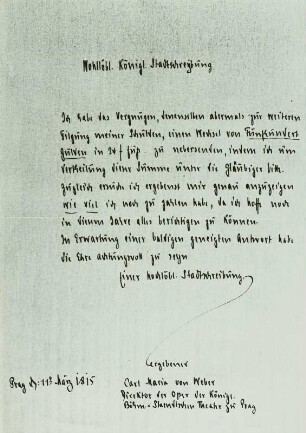 Wohllöbl. Königl. Stadtschreibung
Ich habe das Vergnügen, denenselben abermals zur weiteren
Tilgung meiner Schulden, einen Wechsel von Fünfhundert
Gulden in zu uebersenden, indem ich um
Vertheilung dieser Summe unter die Gläubiger bitte.
Zugleich ersuche ich ergebenst mir genau anzuzeigen
wie viel ich noch zu zahlen habe, da ich hoffe noch
in diesem Jahre alles berichtigen zu können.
In Erwartung einer baldigen geneigten Antwort habe
die Ehre achtungsvoll zu seyn
Einer hochlöbl. Stadtschreibung.
ergebener
Prag d: 11t März 1815
Carl Maria von Weber
Direktor der Oper der Königl.
Böhm: Staendischen Theater zu Prag